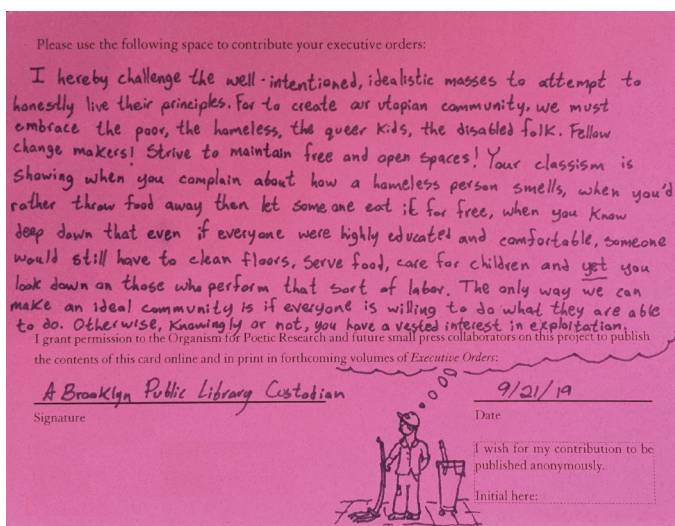 Please use the following space to contribute your executive orders:
I hereby challenge the well-intentioned, idealistic masses to attempt to
honestly live their principles. For to create our utopian community, we must
embrace the poor, the homeless, the queer kids, the disabled folk. Fellow
change makers! Strive to maintain free and open spaces! Your classism is
showing when you complain about how a homeless person smells, when you'd
rather throw food away then let some one eat it for free, when you know
deep down that even if everyone were highly educated and comfortable, someone
would still have to clean floors, serve food, care for children and yet you
look down on those who perform that sort of labor. The only way we can
make an ideal community is if everyone is willing to do what they are able
to do. Otherwise, knowingly or not, you have a vested interest in exploitation.
I grant permission to the Organism for Poetic Research and future small press collaborators on this project to publish
the contents of this card online and in print in forthcoming volumes of Executive Orders:
A Brooklyn Public Library Custodian
Signature
9/21/19
Date
I wish for my contribution to be
published anonymously.
Initial here: